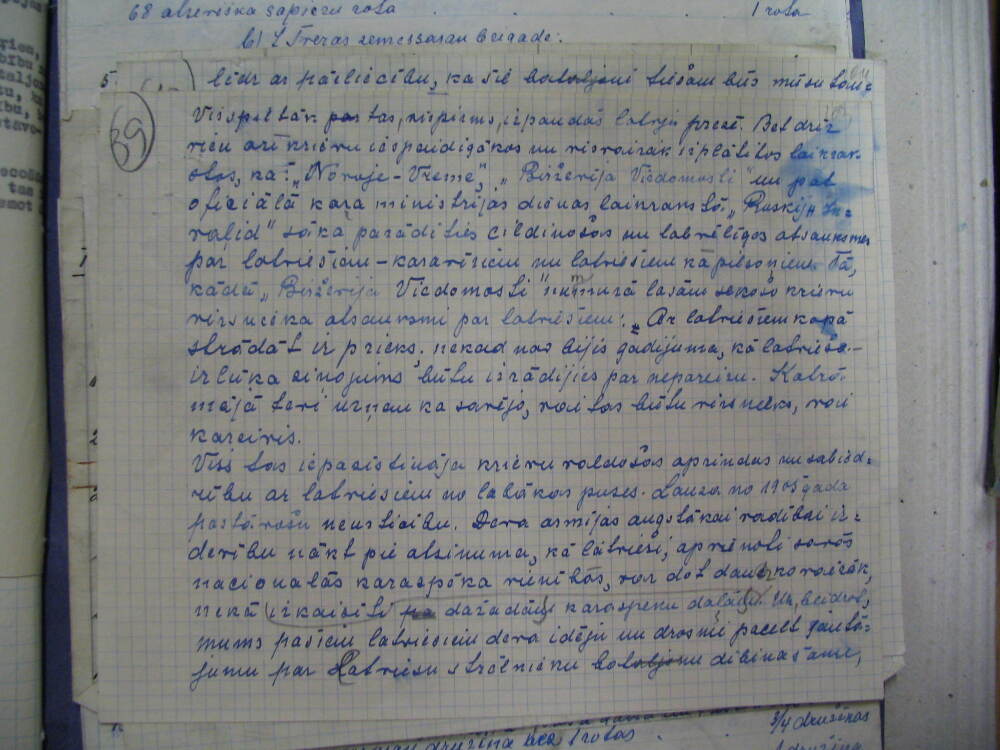 68 atsevišķa sapieru rota 1 rota
b) 4 Trešās zemessargu brigade:
5.
līdz ar pārliecību, ka šie bataljoni tiešām būs mūsu
39
Vispirms tas, izpaudās latvju presē. Bet drīz
vien arī krievu iespaidīgākos un visvairāk izplātītos laikrak-
stos, kā: „Novoje-Vremę", „Birževija Viedomosti" un pat
oficiālā kara ministrijas dienas laikrakstā „Ruskij In-
valid" sāka parādīties cildinošas un labvēlīgas atsauksmes
par latviešiem - karavīriem un latviešiem kā pilsoņiem. Tā,
kādā „Birževija Viedomosti" nummurā lasām sekošo krievu
virsnieka atsauksmi par latviešiem: „Ar latviešiem kopā
strādāt ir prieks, nekad nav bijis gadijuma, ka latvieša -
izlūka ziņojums būtu izrādijies par nepareizu. Katrā
mājā tevi uzņem kā savējo, vai tas būtu virsnieks, vai
kareivis.
Viss tas iepazīstināja krievu valdošās aprindas un sabied-
rību ar latviešiem no labākās puses. Lauza no 1905 gada
pastāvošu neusticību. Deva armijas augstākai vadībai ie-
dvesmu nākt pie atzinuma, kā latvieši, apvienoti savās
nacionalās karaspēka vienībās, var dot daudz ko vairāk,
nekā izkaisīti pa dažadām karaspēka daļām. Un, beidzot,
mums pašiem latviešiem deva ideju un drosmi pacelt jautā-
jumu par Latviešu strēlnieku bataljonu dibināšanu,
3/4 družinas
družinā bez 1 rotas